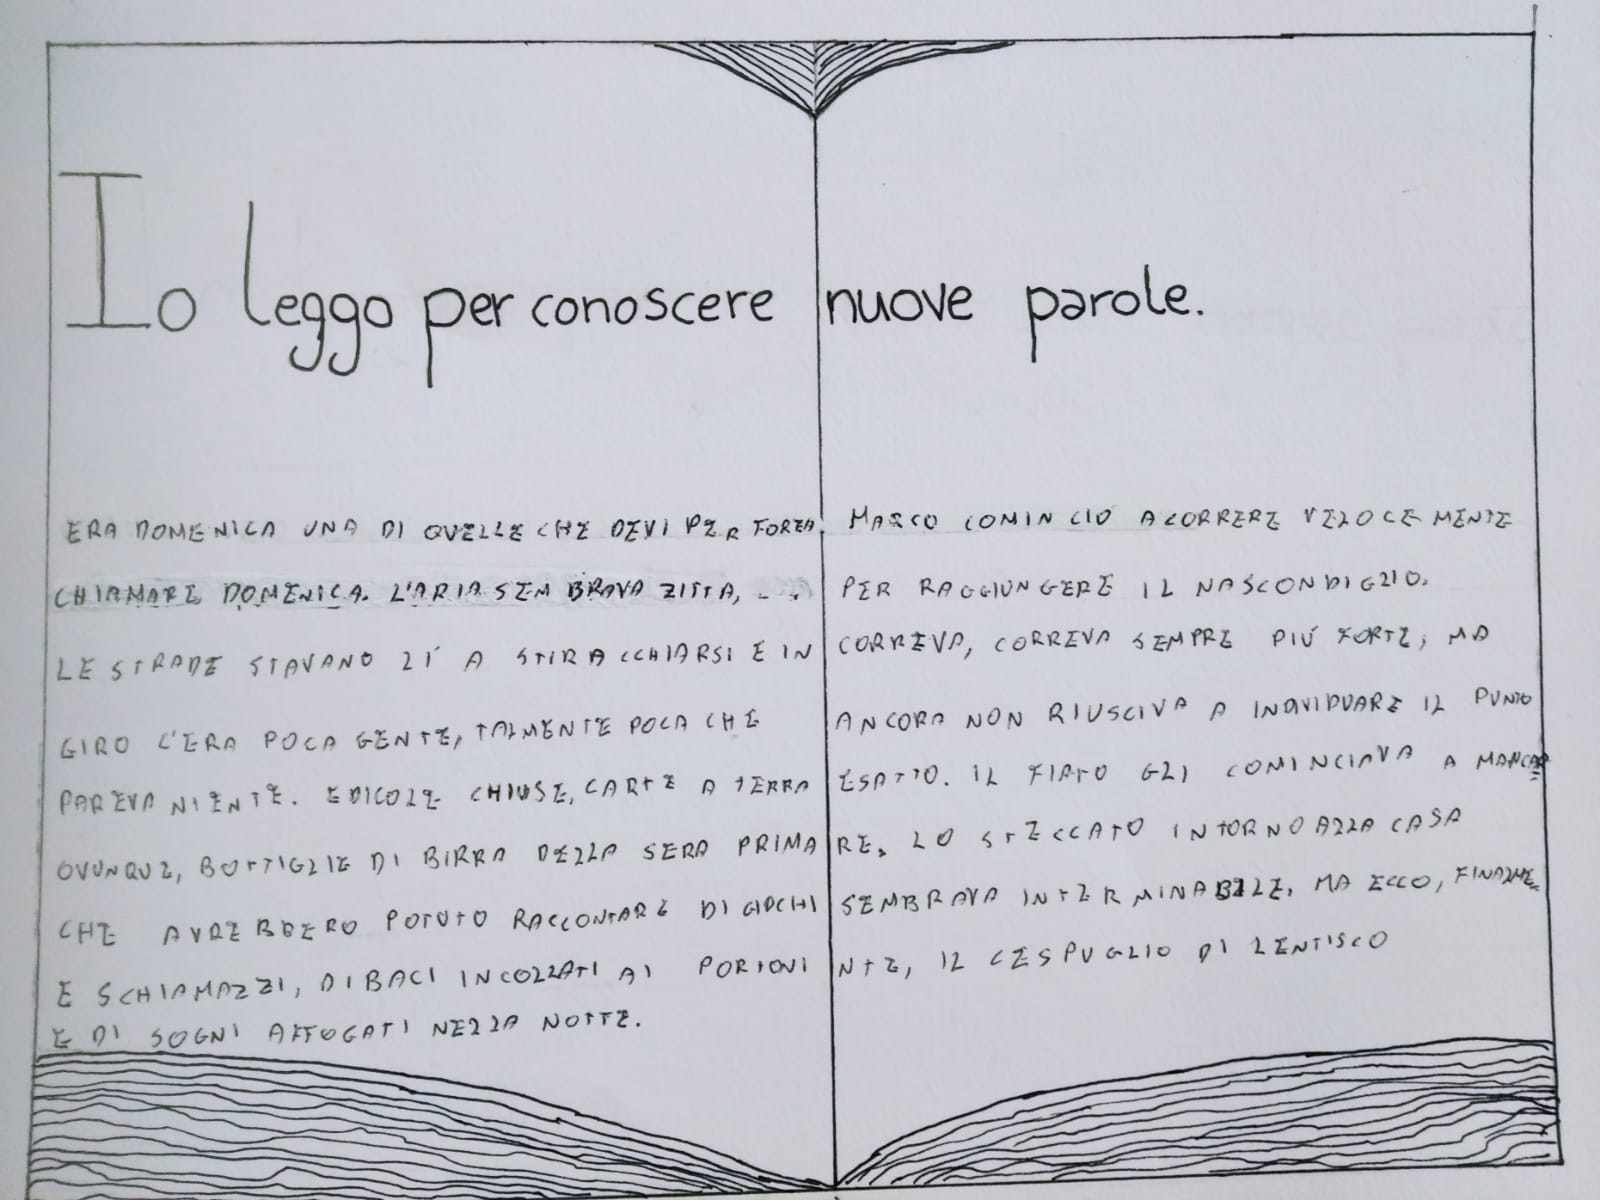 Io leggo per conoscere nuove parole.
ERA DOMENICA UNA DI QUELLE CHE DEVI PER FORZA
CHIAMARE DOMENICA. L'ARIA SEMBRAVA ZITTA, ...
LE STRADE STAVANO LÌ A STIRACCHIARSI E IN
GIRO C'ERA POCA GENTE, TALMENTE POCA CHE
PAREVA NIENTE. EDICOLE CHIUSE, CARTE A TERRA
OVUNQUE, BOTTIGLIE DI BIRRA DELLA SERA PRIMA
CHE AVREBBERO POTUTO RACCONTARE DI GIOCHI
E SCHIAMAZZI, DI BACI INCOLLATI AI PORTONI
E DI SOGNI AFFOGATI NELLA NOTTE.
MARCO COMINCIÒ A CORRERE VELOCEMENTE
PER RAGGIUNGERE IL NASCONDIGLIO.
CORREVA, CORREVA SEMPRE PIÚ FORTE, MA
ANCORA NON RIUSCIVA A INDIVIDUARE IL PUNTO
ESATTO. IL FIATO GLI COMINCIAVA A MANCA
RE. LO STECCATO INTORNO ALLA CASA
SEMBRAVA INTERMINABILE. MA ECCO, FINALME
NTE, IL CESPUGLIO DI LENTISCO